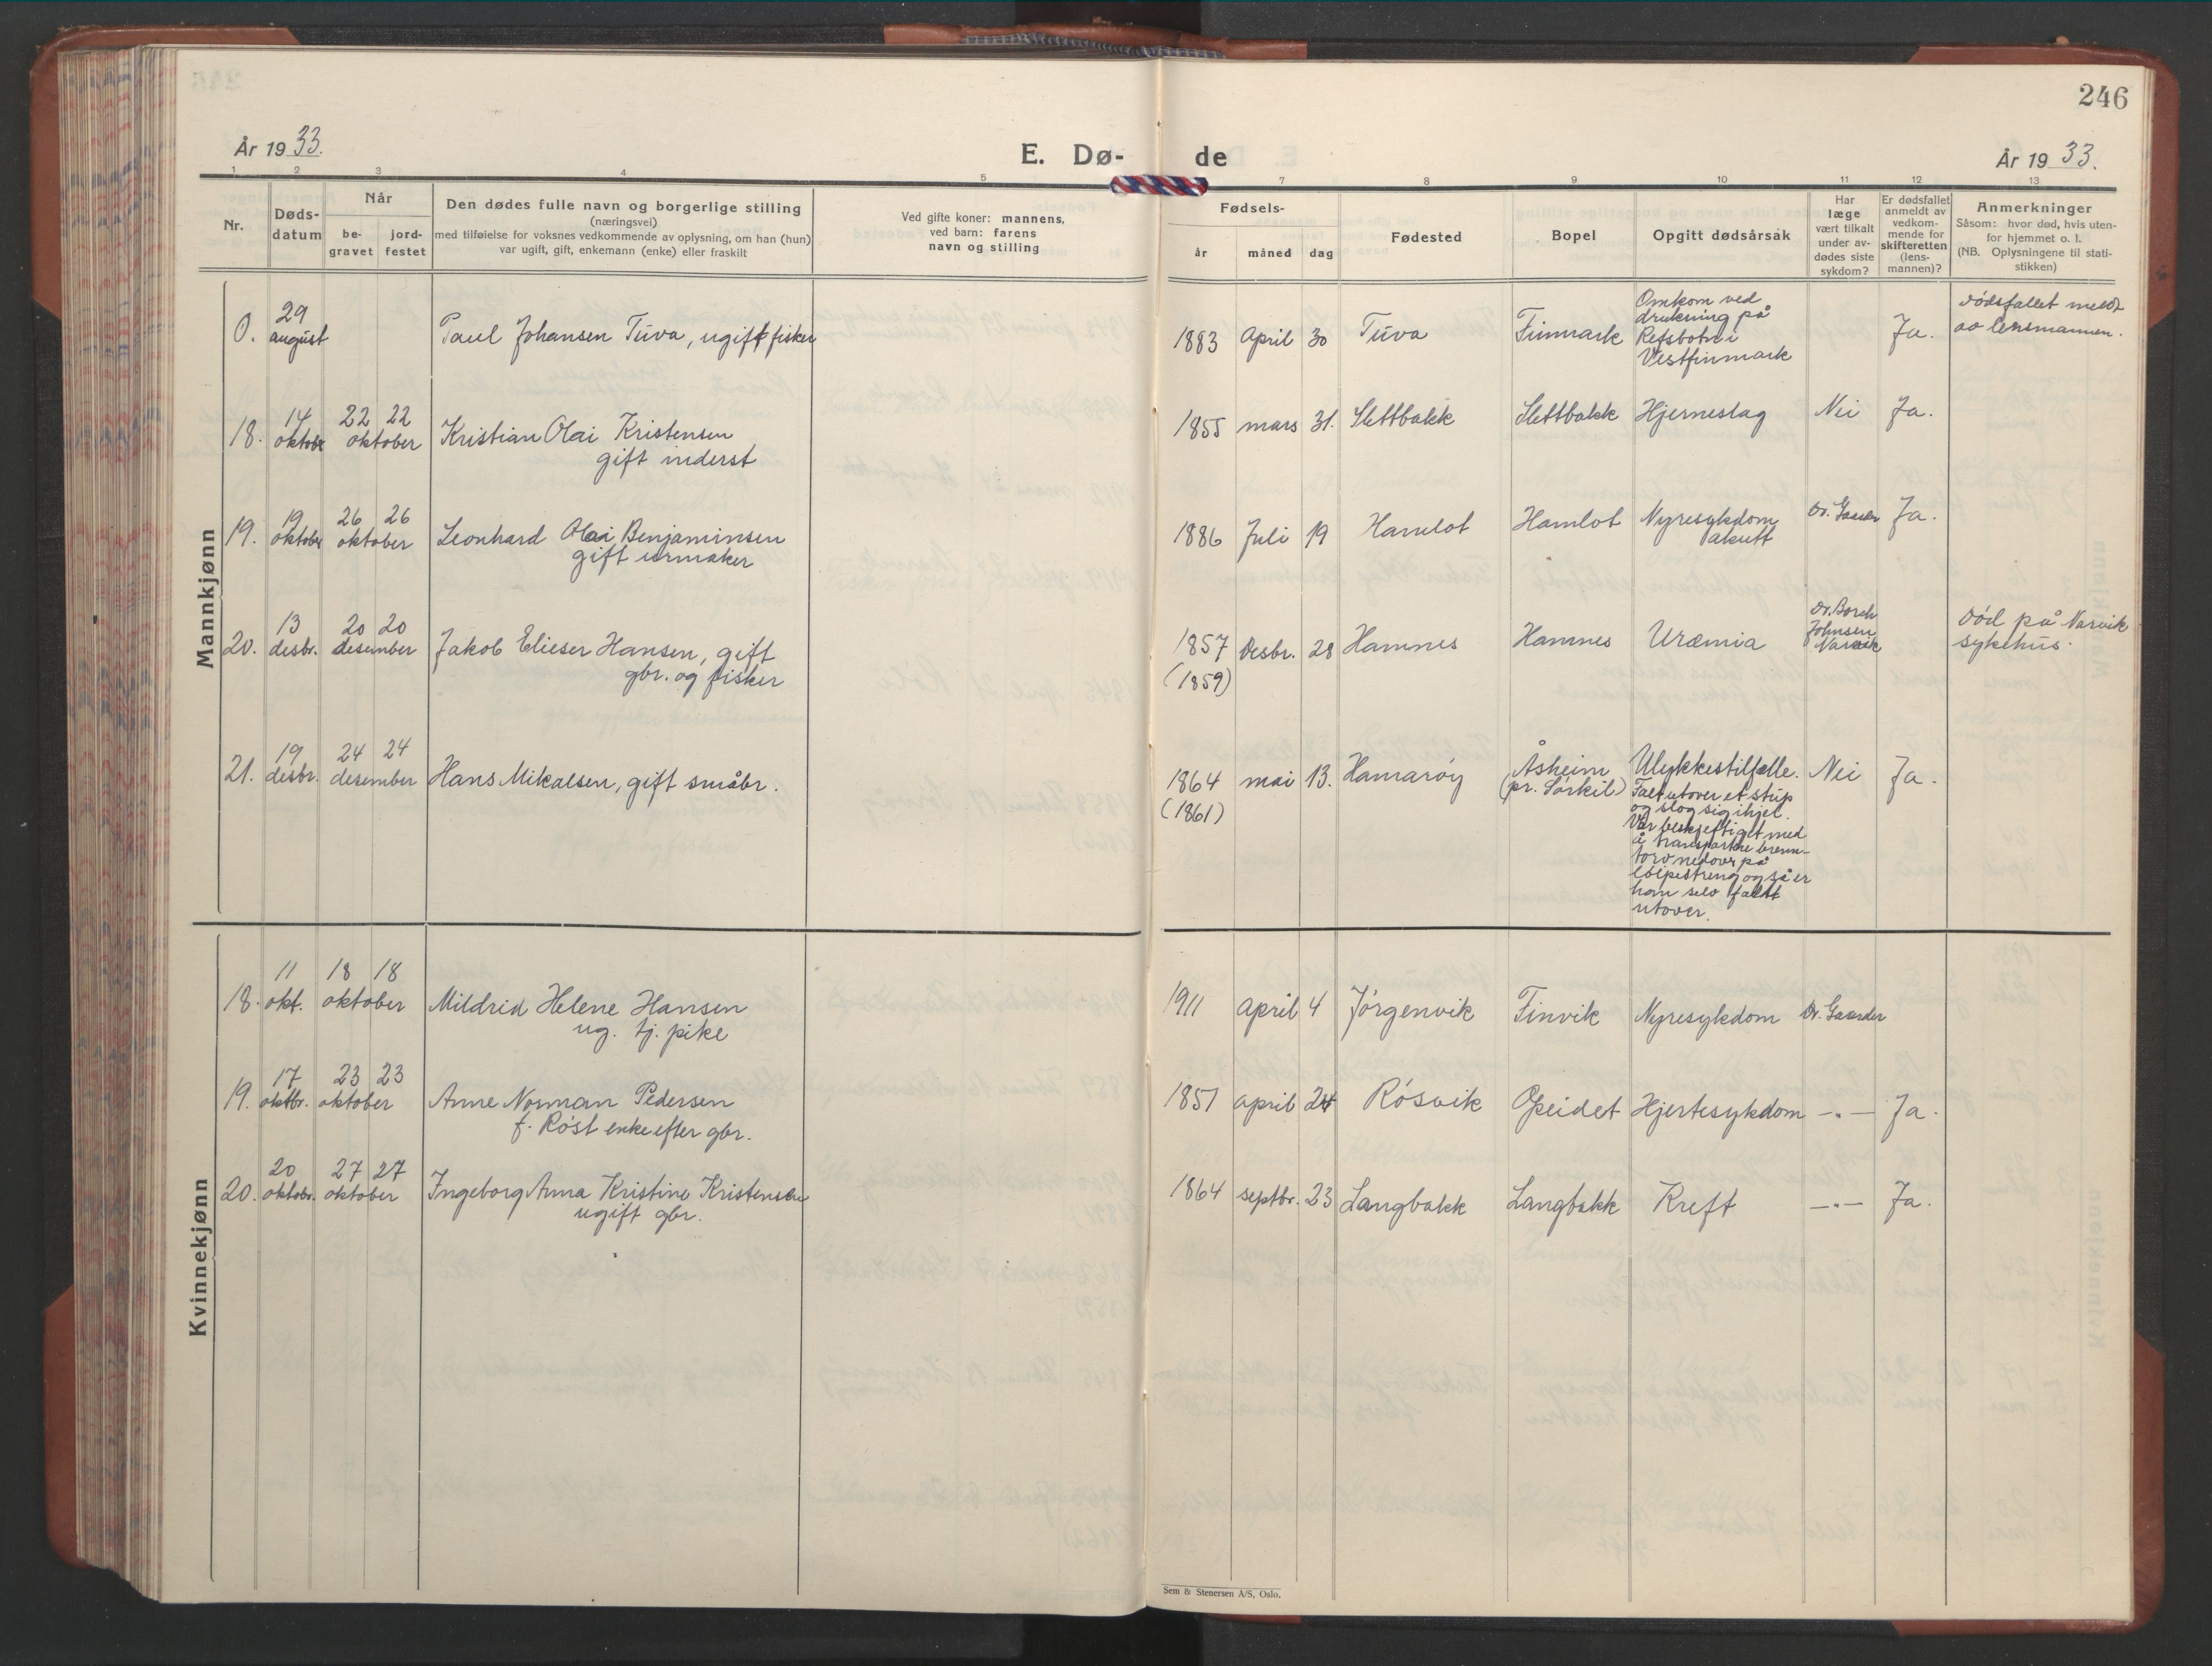 246
År 1933.
E. Dø- de
År 1933.
1 2 3 4 5 7 8 9 10 11 12 13
Nr.
Døds-
datum
Når
be-
gravet
jord-
festet
Den dødes fulle navn og borgerlige stilling
(næringsvei)
med tilføielse for voksnes vedkommende av oplysning, om han (hun)
var ugift, gift, enkemann (enke) eller fraskilt
Ved gifte koner: mannens,
ved barn: farens
navn og stilling
Fødsels-
år måned dag
Fødested
Bopel
Opgitt dødsårsak
Har
læge
vært tilkalt
under av-
dødes siste
sykdom?
Er dødsfallet
anmeldt av
vedkom-
mende for
skifteretten
(lens-
mannen)?
Anmerkninger
Såsom: hvor død, hvis uten-
for hjemmet o. l.
(NB. Oplysningene til stati-
stikken)
Mannkjønn
0. 29
august
Paul Johansen Tuva, ugift fisker
1883 April 30 Tuva Finmark
Omkom ved
drukning på
Refsbotn i
Vestfinmark
Ja.
Dødsfallet meldt
av lensmannen.
18. 14 22 22
oktobr oktober
Kristian Olai Kristensen
gift inderst
1855 mars 31. Slettbakk Slettbakk Hjerneslag Nei Ja.
19. 19 26 26
oktober oktober
Leonhard Olai Benjaminsen
gift urmaker
1886 Juli 19 Hamlot Hamlot Nyresykdom
akutt
Dr. Gaarder Ja.
20. 13 20 20
desbr. desember
Jakob Elieser Hansen, gift
gbr. og fisker
1857 Desbr. 28 Hamnes Hamnes Uræmia
(1859)
Dr. Borch
Johnsen
Narvik
Død på Narvik
sykehus.
21. 19 24 24
desbr. desember
Hans Mikalsen, gift småbr.
1864 mai 13. Hamarøy
(1861)
Åsheim
(pr. Sørkil)
Ulykkestilfælle.
Falt utover et stup
og slog sig ihjel.
Var beskjeftiget med
å transportere brenn-
torv nedover på
løipestreng og så er
han selv falt
utover.
Nei Ja.
Kvinnekjønn
18. 11 18 18
okt. oktober
Mildrid Helene Hansen
ug. tj. pike
1911 april 4 Jørgenvik Finvik Nyresykdom Dr. Gaarder
19. 17 23 23
oktbr. oktober
Anne Norman Pedersen
f. Røst enke efter gbr.
1851 april 24 Røsvik Opeidet Hjertesykdom —"— Ja.
20. 20 27 27
oktobr. oktober
Ingeborg Anna Kristine Kristensen
ugift gbr.
1864 septbr. 23 Langbakk Langbakk Kreft —"— Ja.
Sem & Stenersen A/S, Oslo.